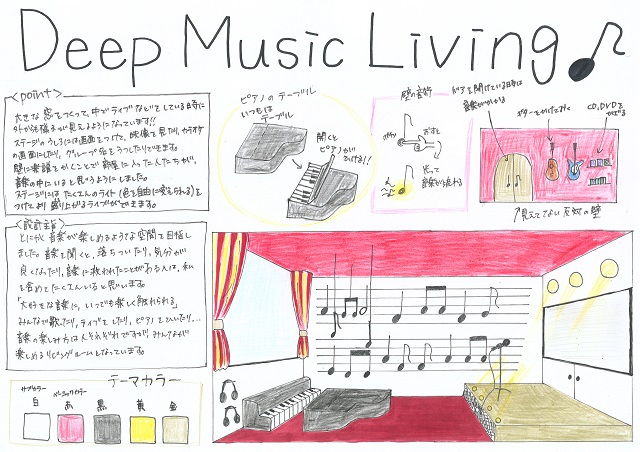 Deep Music Living
<point>
大きな窓をつくって、中でライブなどをしている時に
外からも様子が見えるようになっています!!
ステージのうしろには画面をつけて、映像を見たり、カラオケ
の画面にしたり、グループ名をうつしたりできます。
壁に楽譜をかくことで部屋に入った人たちが、
音楽の中にいると思うようにしました。
ステージにはたくさんのライト(色を自由に変えられる)を
つけてより盛り上がるライブができます。
<設計主旨>
とにかく音楽が楽しめるような空間を目指し
ました。音楽を聞くと、落ちついたり、気分が
良くなったり、音楽に救われたことがある人は、私
を含めてたくさんいると思います。
「大好きな音楽に、いつでも楽しく触れられる」
みんなで歌ったり、ライブをしたり、ピアノをひいたり...
音楽の楽しみ方は人それぞれですが、みんなが
楽しめるリビングルームとなっています。
テーマカラー
サブカラー
白
ベーシックカラー
赤
黒
黄
金
ピアノのテーブル
いつもは
テーブル
開くと
ピアノが
ひける!!
壁の音符
ボタン
おすと
光って
音楽が流れる
ドアを開けている時は
音楽がかかる
ギターをかけておく
CD,DVDを
かざる
↑見えてない反対の壁